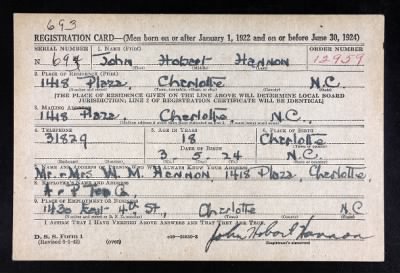 693
REGISTRATION CARD—(Men born on or after January 1, 1922 and on or before June 30, 1924)
SERIAL NUMBER 1. NAME (Print) ORDER NUMBER
N John Hobart Hannon 12959
2. PLACE OF RESIDENCE (Print)
1418 Plaza, Charlotte N.C.
[THE PLACE OF RESIDENCE GIVEN ON THE LINE ABOVE WILL DETERMINE LOCAL BOARD
JURISDICTION; LINE 2 OF REGISTRATION CERTIFICATE WILL BE IDENTICAL]
3. MAILING ADDRESS
1418 Plaza. Charlotte, N.C.
4. TELEPHONE 5. AGE IN YEARS 6. PLACE OF BIRTH
31829 18 Charlotte
DATE OF BIRTH
3 5 24 N.C.
7. NAME AND ADDRESS OF PERSON WHO WILL ALWAYS KNOW YOUR ADDRESS
Mr. & Mrs W. M. Hannon 1418 Plaza, Charlotte,
8. EMPLOYER'S NAME AND ADDRESS
A & P
9. PLACE OF EMPLOYMENT OR BUSINESS
1430 East 4th St., Charlotte N.C
I AFFIRM THAT I HAVE VERIFIED ABOVE ANSWERS AND THAT THEY ARE TRUE.
D. S. S. Form 1
(Revised 6-9-42) (over) John Hobart Hannon
(Registrant's signature)